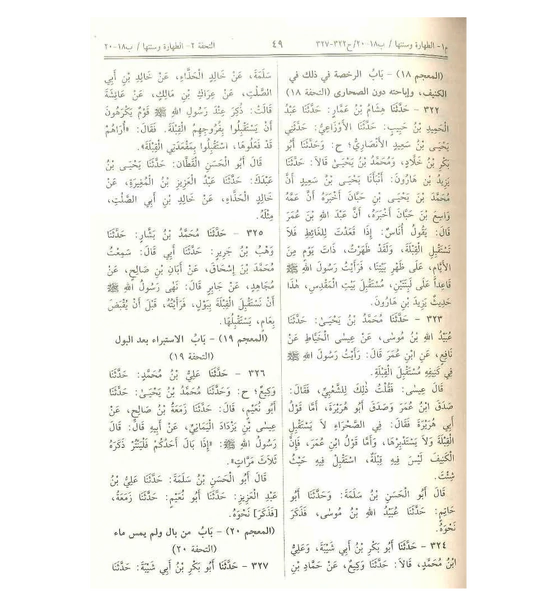 م١- الطهارة وسننها / ب١٨-٢٠/ح٣٢٢-٣٢٧
٤٩
التحفة ٢- الطهارة وسننها / ب١٨-٢٠
(المعجم ١٨) - بَابُ الرخصة في ذلك في
الكنيف، وإباحته دون الصحارى (التحفة ١٨)
٣٢٢ - حَدَّثَنَا هِشَامُ بْنُ عَمَّارٍ: حَدَّثَنَا عَبْدُ
الْحَمِيدِ بْنُ حَبِيبٍ: حَدَّثَنَا الْأَوْزَاعِيُّ: حَدَّثَنِي
يَحْيَى بْنُ سَعِيدٍ الْأَنْصَارِيُّ؛ ح: وَحَدَّثَنَا أَبُو
بَكْرِ بْنُ خَلَّادٍ، وَمُحَمَّدُ بْنُ يَحْيَى قَالَا: حَدَّثَنَا
يَزِيدُ بْنُ هَارُونَ: أَنْبَأَنَا يَحْيَى بْنُ سَعِيدٍ أَنَّ
مُحَمَّدَ بْنَ يَحْيَى بْنِ حَبَّانَ أَخْبَرَهُ أَنَّ عَمَّهُ
وَاسِعَ بْنَ حَبَّانَ أَخْبَرَهُ، أَنَّ عَبْدَ اللهِ بْنَ عُمَرَ
قَالَ: يَقُولُ أُنَاسٌ: إِذَا قَعَدْتَ لِلْغَائِطِ فَلَا
تَسْتَقْبِلِ الْقِبْلَةَ، وَلَقَدْ ظَهَرْتُ، ذَاتَ يَوْمٍ مِنَ
الْأَيَّامِ، عَلَى ظَهْرِ بَيْتِنَا، فَرَأَيْتُ رَسُولَ اللهِ ﷺ
قَاعِدًا عَلَى لَبِنَتَيْنِ، مُسْتَقْبِلَ بَيْتِ الْمَقْدِسِ، هَذَا
حَدِيثُ يَزِيدَ بْنِ هَارُونَ.
٣٢٣ - حَدَّثَنَا مُحَمَّدُ بْنُ يَحْيَى: حَدَّثَنَا
عُبَيْدُ اللهِ بْنُ مُوسَى، عَنْ عِيسَى الْخَيَّاطِ عَنْ
نَافِعٍ، عَنِ ابْنِ عُمَرَ قَالَ: رَأَيْتُ رَسُولَ اللهِ ﷺ
فِي كَنِيفِهِ مُسْتَقْبِلَ الْقِبْلَةِ.
قَالَ عِيسَى: فَقُلْتُ ذَلِكَ لِلشَّعْبِيِّ، فَقَالَ:
صَدَقَ ابْنُ عُمَرَ وَصَدَقَ أَبُو هُرَيْرَةَ، أَمَّا قَوْلُ
أَبِي هُرَيْرَةَ فَقَالَ: فِي الصَّحْرَاءِ لَا يَسْتَقْبِلِ
الْقِبْلَةَ وَلَا يَسْتَدْبِرْهَا، وَأَمَّا قَوْلُ ابْنِ عُمَرَ، فَإِنَّ
الْكَنِيفَ لَيْسَ فِيهِ قِبْلَةٌ، اسْتَقْبِلْ فِيهِ حَيْثُ
شِئْتَ.
قَالَ أَبُو الْحَسَنِ بْنُ سَلَمَةَ: وَحَدَّثَنَا أَبُو
حَاتِمٍ: حَدَّثَنَا عُبَيْدُ اللهِ بْنُ مُوسَى، فَذَكَرَ
نَحْوَهُ.
٣٢٤ - حَدَّثَنَا أَبُو بَكْرِ بْنُ أَبِي شَيْبَةَ، وَعَلِيُّ
ابْنُ مُحَمَّدٍ، قَالَا: حَدَّثَنَا وَكِيعٌ، عَنْ حَمَّادِ بْنِ
سَلَمَةَ، عَنْ خَالِدٍ الْحَذَّاءِ، عَنْ خَالِدِ بْنِ أَبِي
الصَّلْتِ، عَنْ عِرَاكِ بْنِ مَالِكٍ، عَنْ عَائِشَةَ
قَالَتْ: ذُكِرَ عِنْدَ رَسُولِ اللهِ ﷺ قَوْمٌ يَكْرَهُونَ
أَنْ يَسْتَقْبِلُوا بِفُرُوجِهِمُ الْقِبْلَةَ. فَقَالَ: «أُرَاهُمْ
قَدْ فَعَلُوهَا، اسْتَقْبِلُوا بِمَقْعَدَتِي الْقِبْلَةَ».
قَالَ أَبُو الْحَسَنِ الْقَطَّانُ: حَدَّثَنَا يَحْيَى بْنُ
عَبْدَكَ: حَدَّثَنَا عَبْدُ الْعَزِيزِ بْنُ الْمُغِيرَةِ، عَنْ
خَالِدٍ الْحَذَّاءِ، عَنْ خَالِدِ بْنِ أَبِي الصَّلْتِ،
مِثْلَهُ.
٣٢٥ - حَدَّثَنَا مُحَمَّدُ بْنُ بَشَّارٍ: حَدَّثَنَا
وَهْبُ بْنُ جَرِيرٍ: حَدَّثَنَا أَبِي قَالَ: سَمِعْتُ
مُحَمَّدَ بْنَ إِسْحَاقَ، عَنْ أَبَانَ بْنِ صَالِحٍ، عَنْ
مُجَاهِدٍ، عَنْ جَابِرٍ قَالَ: نَهَى رَسُولُ اللهِ ﷺ
أَنْ نَسْتَقْبِلَ الْقِبْلَةَ بِبَوْلٍ، فَرَأَيْتُهُ، قَبْلَ أَنْ يُقْبَضَ
بِعَامٍ، يَسْتَقْبِلُهَا.
(المعجم ١٩) - بَابُ الاستبراء بعد البول
(التحفة ١٩)
٣٢٦ - حَدَّثَنَا عَلِيُّ بْنُ مُحَمَّدٍ: حَدَّثَنَا
وَكِيعٌ؛ ح: وَحَدَّثَنَا مُحَمَّدُ بْنُ يَحْيَى: حَدَّثَنَا
أَبُو نُعَيْمٍ، قَالَا: حَدَّثَنَا زَمْعَةُ بْنُ صَالِحٍ، عَنْ
عِيسَى بْنِ يَزْدَادَ الْيَمَانِيِّ، عَنْ أَبِيهِ قَالَ: قَالَ
رَسُولُ اللهِ ﷺ: «إِذَا بَالَ أَحَدُكُمْ فَلْيَنْتُرْ ذَكَرَهُ
ثَلَاثَ مَرَّاتٍ».
قَالَ أَبُو الْحَسَنِ بْنُ سَلَمَةَ: حَدَّثَنَا عَلِيُّ بْنُ
عَبْدِ الْعَزِيزِ: حَدَّثَنَا أَبُو نُعَيْمٍ: حَدَّثَنَا زَمْعَةُ،
[فَذَكَرَ] نَحْوَهُ.
(المعجم ٢٠) - بَابُ من بال ولم يمس ماء
(التحفة ٢٠)
٣٢٧ - حَدَّثَنَا أَبُو بَكْرِ بْنُ أَبِي شَيْبَةَ: حَدَّثَنَا